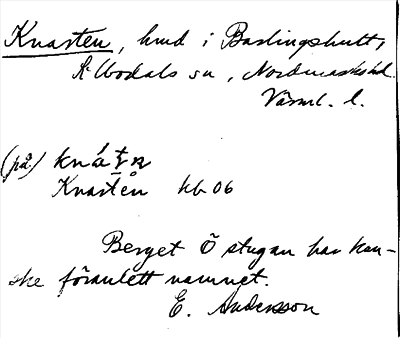 Knarten, hmd i Baslingshult,
K. Ubodals sn, Nordmarks hd.
Värml. l.
(på) knátn
Knarten hb 06
Berget Ö stugan har kan-
ske föranlett namnet.
E. Andersson